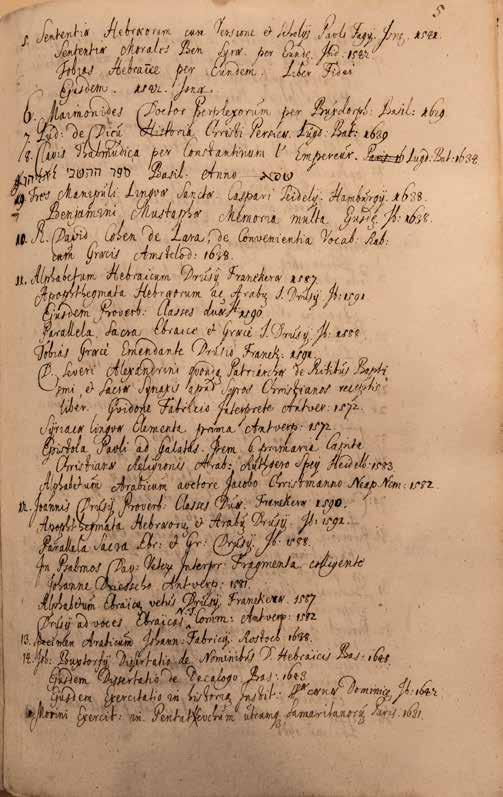 5
5. Sententiæ Hebræorum cum Versione et Scholijs Pauli Fagij. Isnæ. 1541.
Sententiæ Morales Ben Syræ per Eund: Ibid: 1542.
Tobias Hebraice per Eundem. Liber Fidei
Ejusdem. 1542. Isnæ.
6. Maimonides Doctor Perplexorum per Buxdorph: Basil: 1629
7. Lud: de Dieu Historia Christi Persica. Lugd: Bat: 1639
8. Clavis Talmudica per Constantinum l'Empereur. Lugd: Bat: 1634.
ספר התשבי Basil: Anno
9. Tres Manipuli Linguæ Sanctæ Caspari Seidelij. Hamburgij 1638.
Benjamini Mustaphæ Memoria multa Ib: 1638.
10. R. David Cohen de Lara, de Convenientia Vocab: Rab:
cum Græcis Amstelod: 1638.
11. Alphabetum Hebraicum Drusij Franekeræ 1587.
Apophthegmata Hebræorum ac Arabum I. Drusij Ib: 1591.
Ejusdem Proverb: Classes duæ Ib: 1590.
Parallela Sacra Ebraice et Græce I. Drusij Ib: 1588.
Tobias Græce Emendante Drusio Franek: 1591
D. Severi Alexandrini quondam Patriarchæ de Ritibus Bapti
smi et Sacræ Synaxis apud Syros Christianos receptis
liber. Guidone Fabricio Interprete Antver: 1572.
Syriacæ linguæ Elementa prima Antverp: 1572.
Epistola Pauli ad Galatas. Item 6 primaria Capita
Christianæ Religionis Arab: Ruthgero Spey Heidelb: 1583
Alphabetum Arabicum auctore Jacobo Christmanno Neap. Nem: 1582.
12. Joannis Drusij Proverb: Classes Duæ. Franekeræ 1590.
Apophthegmata Hebræorum & Arabum Drusij. Ib: 1591.
Parallela Sacra Ebr: et Gr: Drusij. Ib: 1588.
In Psalmos Dav: Vetex Interpr: Fragmenta colligente
Johanne Drieschio Antverp: 1581.
Alphabetum Ebraicum vetus Drusij Franekeræ. 1587
Drusij ad voces Ebraicas N.T. Comm: Antverp: 1582
13. Specimen Arabicum Johann: Fabricij. Rostoch 1638.
14. Joh: Buxtorfij Dissertatio de Nominibus D. Hebraicis Bas: 1645
Ejusdem Dissertatio de Decalogo Bas: 1643
Ejusdem Exercitatio in historiam Instit: Cænæ Dominicæ Ib: 1642
Morini Exercit: in Pentateuchum utrumque Samaritanorum Paris. 1631.